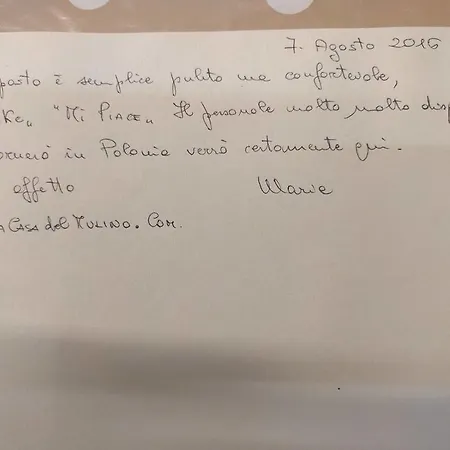 7. Agosto 2016
posto è semplice pulito ma confortevole,
Ke„ "Mi Piace„ Il personale molto molto disp
ornerò in Polonia verrò certamente qui.
affetto Marie
aCasadelMulino.Com.